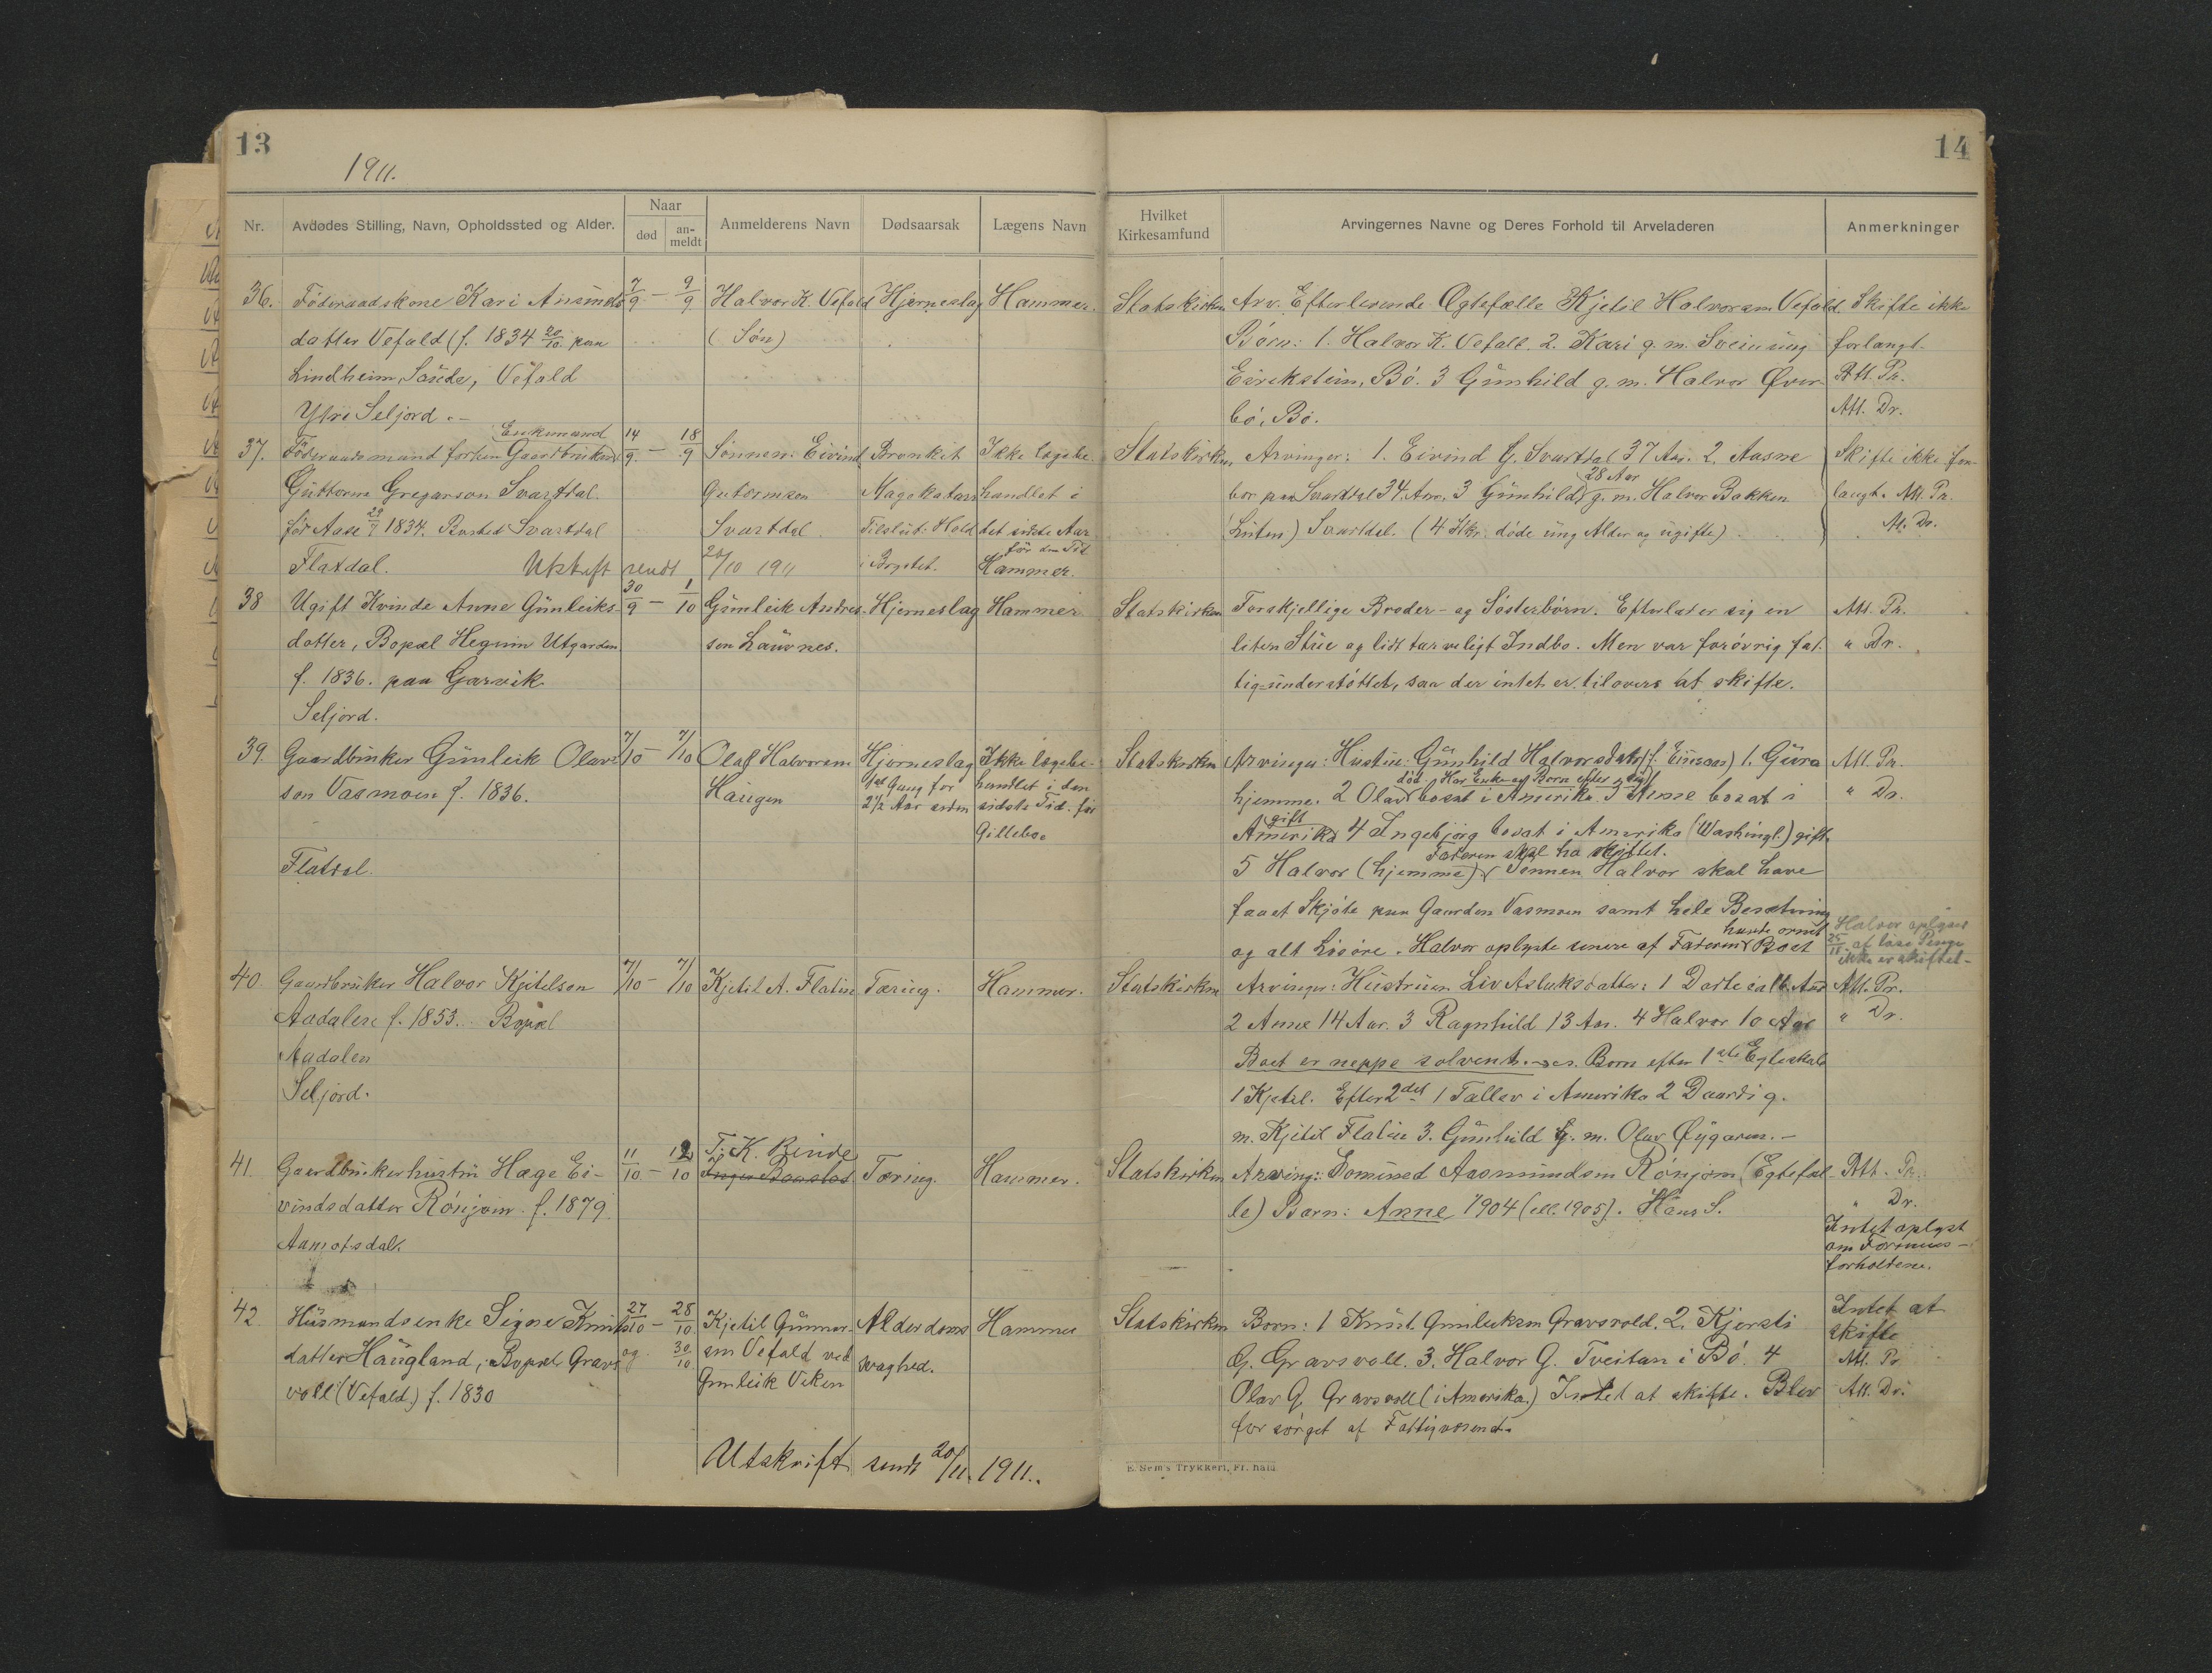 13
1911.
14
Nr. Avdødes Stilling, Navn, Opholdssted og Alder. Naar død an-meldt Anmelderens Navn Dødsaarsak Lægens Navn Hvilket Kirkesamfund Arvingernes Navne og Deres Forhold til Arveladeren Anmerkninger
36. Föderaadskone Kari Aasmunds 7/9 – 9/9 Halvor K. Vefald Hjerneslag Hammer. Statskirken Arv. Efterlevende Ægtefælle Kjetil Halvorsen Vefald. Skifte ikke
datter Vefald (f. 1834 20/10 paa (Søn) Börn: 1. Halvor K. Vefall. 2. Kari g. m. Sveinung forlangt
Lindheim, Saude, Vefald Eirekstein, Bö. 3 Gunhild g. m. Halvor Över- Att. Pr.
Ytre Seljord. – bö, Bö. Att. Dr.
Enkemand
37. Föderaadsmand forhen Gaardbruker 14/9 – 18/9 Sønnen: Eivind Bronkit Ikke lægebe- Statskirken Arvinger: 1. Eivind G. Svartdal 37 Aar. 2. Aasne Skifte ikke for-
28 Aar
Guttorm Gregarson Svartdal. Gutormson Magekatarr handlet i bor paa Svartdal 34 Aar, 3 Gunhild g. m. Halvor Bakken langt. Att. Pr.
för Aase 1834. Bosted Svartdal Svartdal Tilslut: Hold det sidste Aar (Luten) Svartdal. (4 Stkr. döde ung Alder og ugifte) At. Dr.
för den Tid
Flatdal. Utskrift sendt 20/10 1911 i Brystet. Hammer.
38 Ugift Kvinde Anne Gunleiks- 30/9 – 1/10 Gunleik Andres- Hjerneslag Hammer Statskirken Forskjellige Broder- og Sösterbörn. Efterlater sig en Att. Pr.
datter, Bopæl Hegnin Utgarden sen Lauvnes. liten Stue og lidt tarveligt Indbo. Men var forövrig fat- " Dr.
f. 1836. paa Garvik tig-understöttet, saa der intet er tilovers at skifte.
Seljord.
39. Gaardbruker Gunleik Olav- 7/10 – 7/10 Olaf Halvorsen Hjerneslag Ikke lægebe- Statskirken Arvinger: Hustru: Gunhild Halvorsdatr 1. Guro Att. Pr.
död. Har Enke og Born efter sig
son Vasmoen f. 1836. Haugen 1ste Gang for handlet i den hjemme. 2 Olav bosat i Amerika 3 Anne bosat i " Dr.
2 1/2 Aar siden sidste Tid. för
gift
Gillebo. Amerika 4 Ingebjörg bosat i Amerika (Washingt.) gift.
Faderen skal ha skiftet.
Flatdal. 5 Halvor (hjemme) Sønnen Halvor skal have
faaet Skjöte paa Gaarden Vasmoen samt hele Besætning
og alt Lösöre. Halvor oplyste senere af Faderens Boet Halvor oplyser
25/11 at löse Penge
ikke er skiftet –
40. Gaardbruker Halvor Kjetelson 7/10 – 7/10 Kjetil A. Flatin Tæring. Hammer. Statskirken Arvinger: Hustruen Liv Aslaksdatter: 1 Dorte Att. Pr.
Aadalen f. 1853. Bopæl 2 Anne 14 Aar. 3 Ragnhild 13 Aar. 4 Halvor 10 Aar " Dr.
Aadalen Boet er neppe solvent. Born efter 1ste Egteskab
Seljord. 1 Kjetel. Efter 2det 1 Tallev i Amerika 2 Daardi g.
m. Kjetil Flatin 3. Gunhild g. m. Olav Öygaren. –
41. Gaardbrukerhustru Hæge Ei- 11/10 – 12/10 T. K. Binde Tæring. Hammer. Statskirken Arving: Aasmundsen Rönjom (Egtefæl- Att. Pr.
vindsdatter Rönjom f. 1879. le) Barn: Anne 1904 (ell. 1905). Hans S. " Dr.
Aamotsdal. Intet oplyst
om Formues-
forholdene.
42. Husmandsenke Signe Knuts 27/10 – 28/10 Kjetil Gunnar- Alderdoms Hammer Statskirken Born: 1 Knut Gunleiksen Gravsvold. 2. Kjersti Intet at
datter Haugland, Bopæl Gravs og 30/10 sen Vefald ved svaghed. G. Gravsvoll. 3. Halvor G. Tveitan i Bö. 4 skifte
voll (Vefald.) f. 1830 Gunleik Viken Olav G. Gravsvoll (i Amerika.) Intet at skifte. Blev Att. Pr.
forsörget af Fattigvæsenet. Att. Dr.
Utskrift sendt 20/11. 1911.
E. Sem's Trykkeri, Fr.hald.